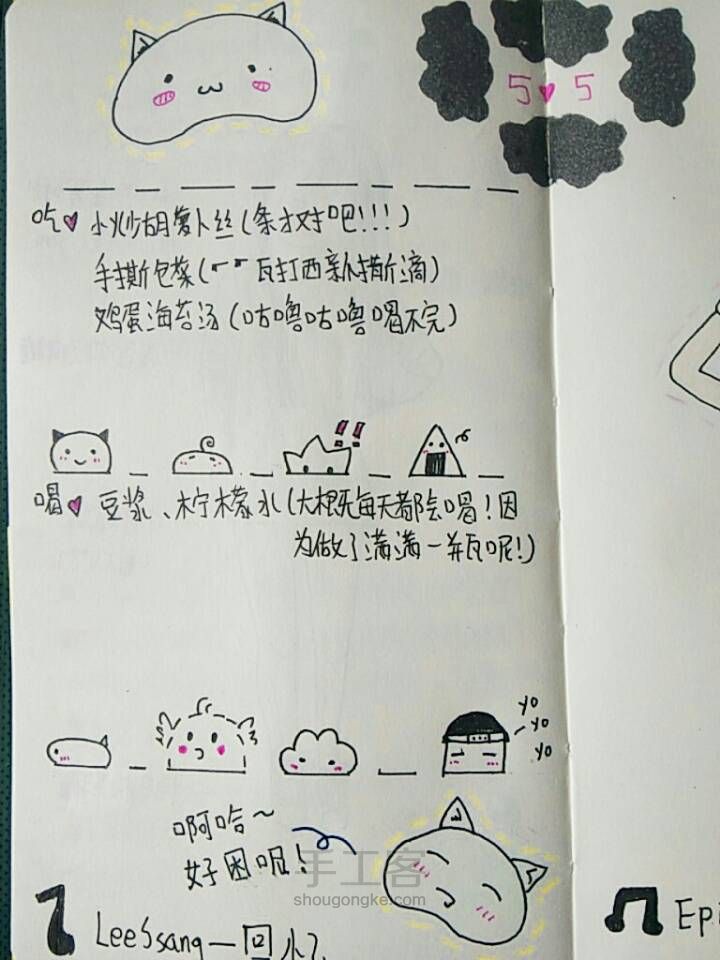 5♥5
吃♥ 小炒胡萝卜丝(条才对吧!!!)
手撕包菜(瓦打西亲手撕滴)
鸡蛋海苔汤(咕噜咕噜喝不完)
!!
喝♥ 豆浆、柠檬水(大概每天都会喝!因
为做了满满一瓶呢!)
yo
yo
yo
啊哈~
好困呢!
手工客
shougongke.com
LeeSsang—回
Epi